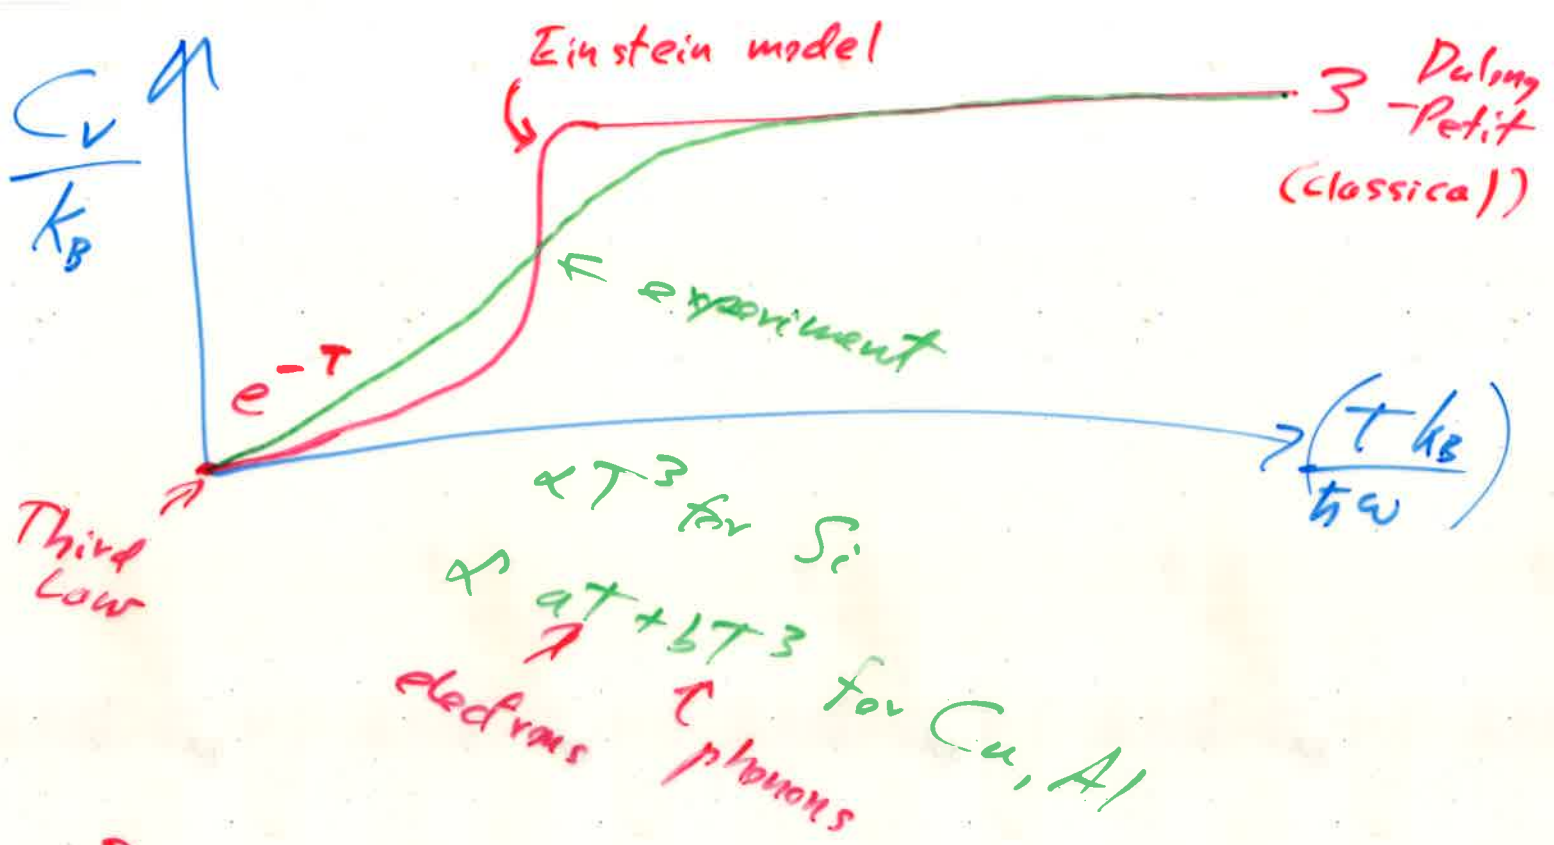 Einstein model
C_V / k_B
3 Dulong
-Petit
(classical)
← experiment
e^-T
(T k_B / ħω)
Third
Law
∝ T^3 for Si
∝ aT + bT^3 for Cu, Al
electrons
phonons